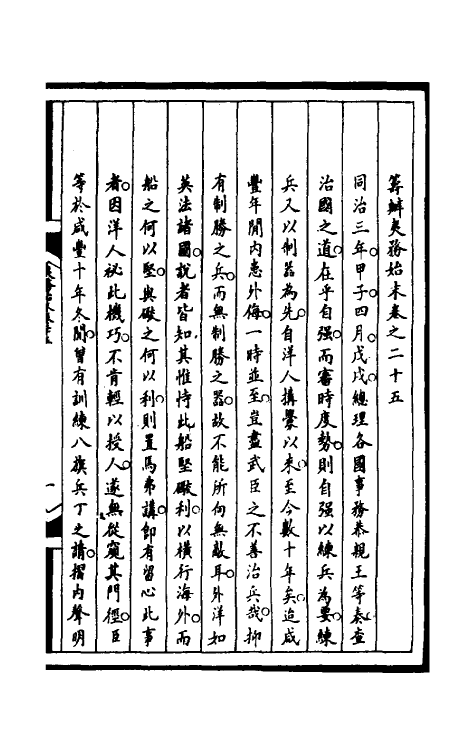 籌辦夷務始末卷之二十五
同治三年甲子四月戊戌總理各國事務恭親王等奏查
治國之道在乎自强而審時度勢則自强以練兵為要練
兵又以制器為先自洋人搆釁以來至今數十年矣迨咸
豐年間内患外侮一時並至豈盡武臣之不善治兵哉抑
有制勝之兵而無制勝之器故不能所向無敵耳外洋如
英法諸國說者皆知其惟恃此船堅礮利以橫行海外而
船之何以堅與礮之何以利則置焉弗講卽有留心此事
者因洋人祕此機巧不肯輕以授人遂無從窺其門徑臣
等於咸豐十年冬間曾有訓練八旗兵丁之請摺内聲明